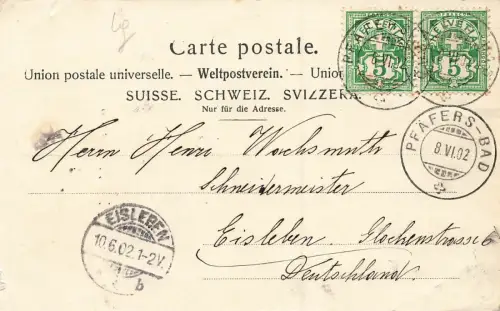 Carte postale.
Union postale universelle. — Weltpostverein. — Unio
SUISSE. SCHWEIZ. SVIZZERA.
Nur für die Adresse.
HELVETIA
5
5
PFÄFERS-BAD
8.VI.02
Herrn Henri Wachsmuth
Schneidermeister
Eisleben. Glockenstrasse 6
Deutschland.
EISLEBEN
10.6.02.1-2V.
b